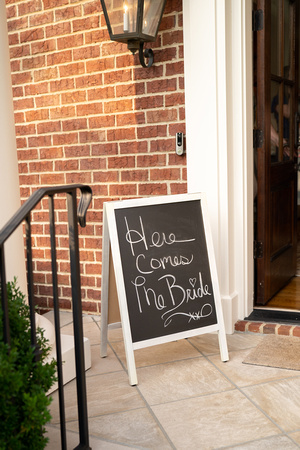 Here
Comes
The Bride
xx